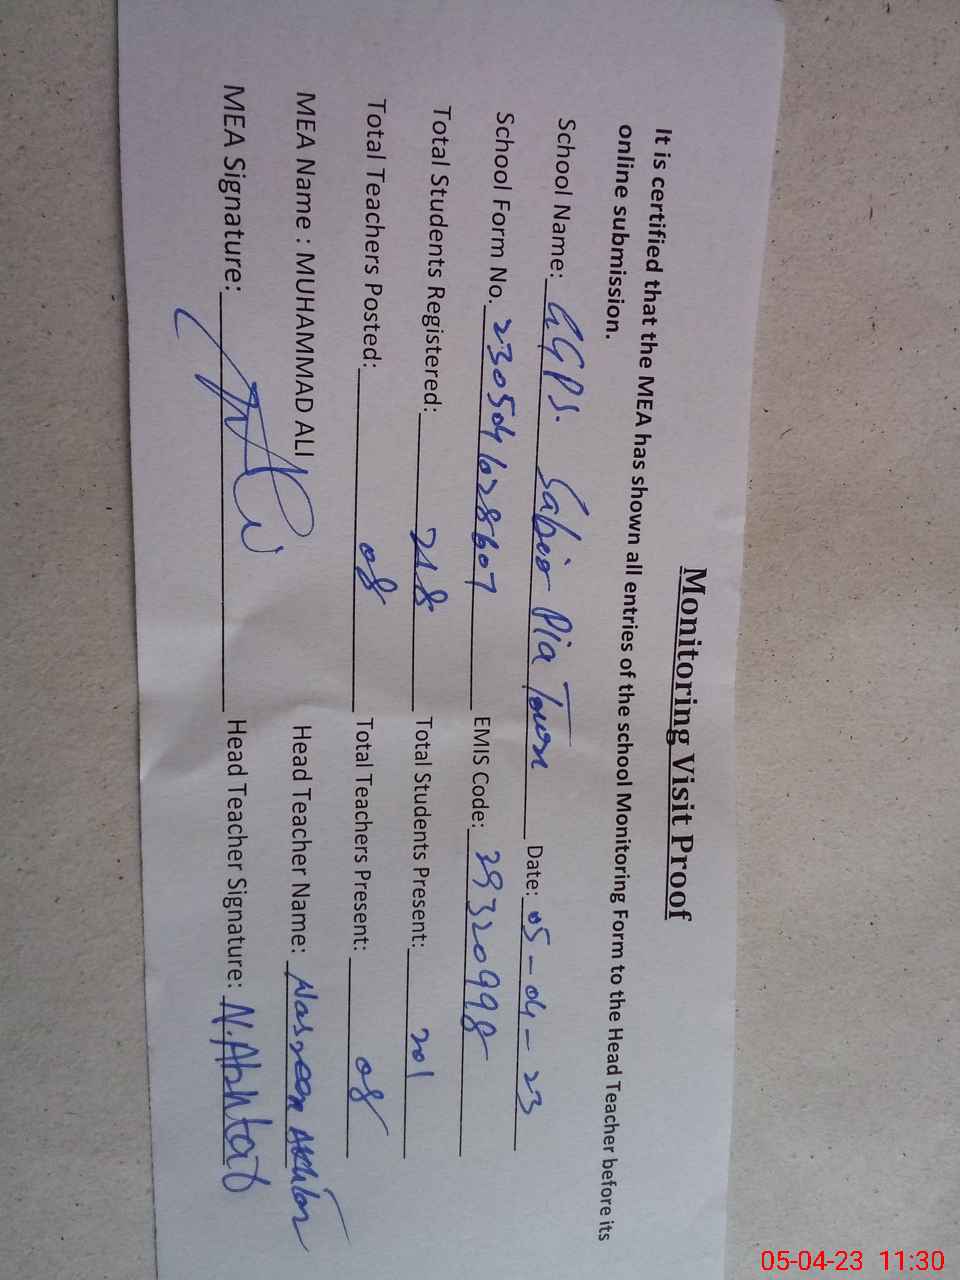 Monitoring Visit Proof
It is certified that the MEA has shown all entries of the school Monitoring Form to the Head Teacher before its
online submission.
School Name: GGPS. Sabir Pia Town Date: 05-04-23
School Form No. 2305041028607 EMIS Code: 39320998
Total Students Registered: 218 Total Students Present: 201
Total Teachers Posted: 08 Total Teachers Present: 08
MEA Name : MUHAMMAD ALI Head Teacher Name: Nasreen Akhtar
MEA Signature: Head Teacher Signature: N.Akhtar
05-04-23 11:30